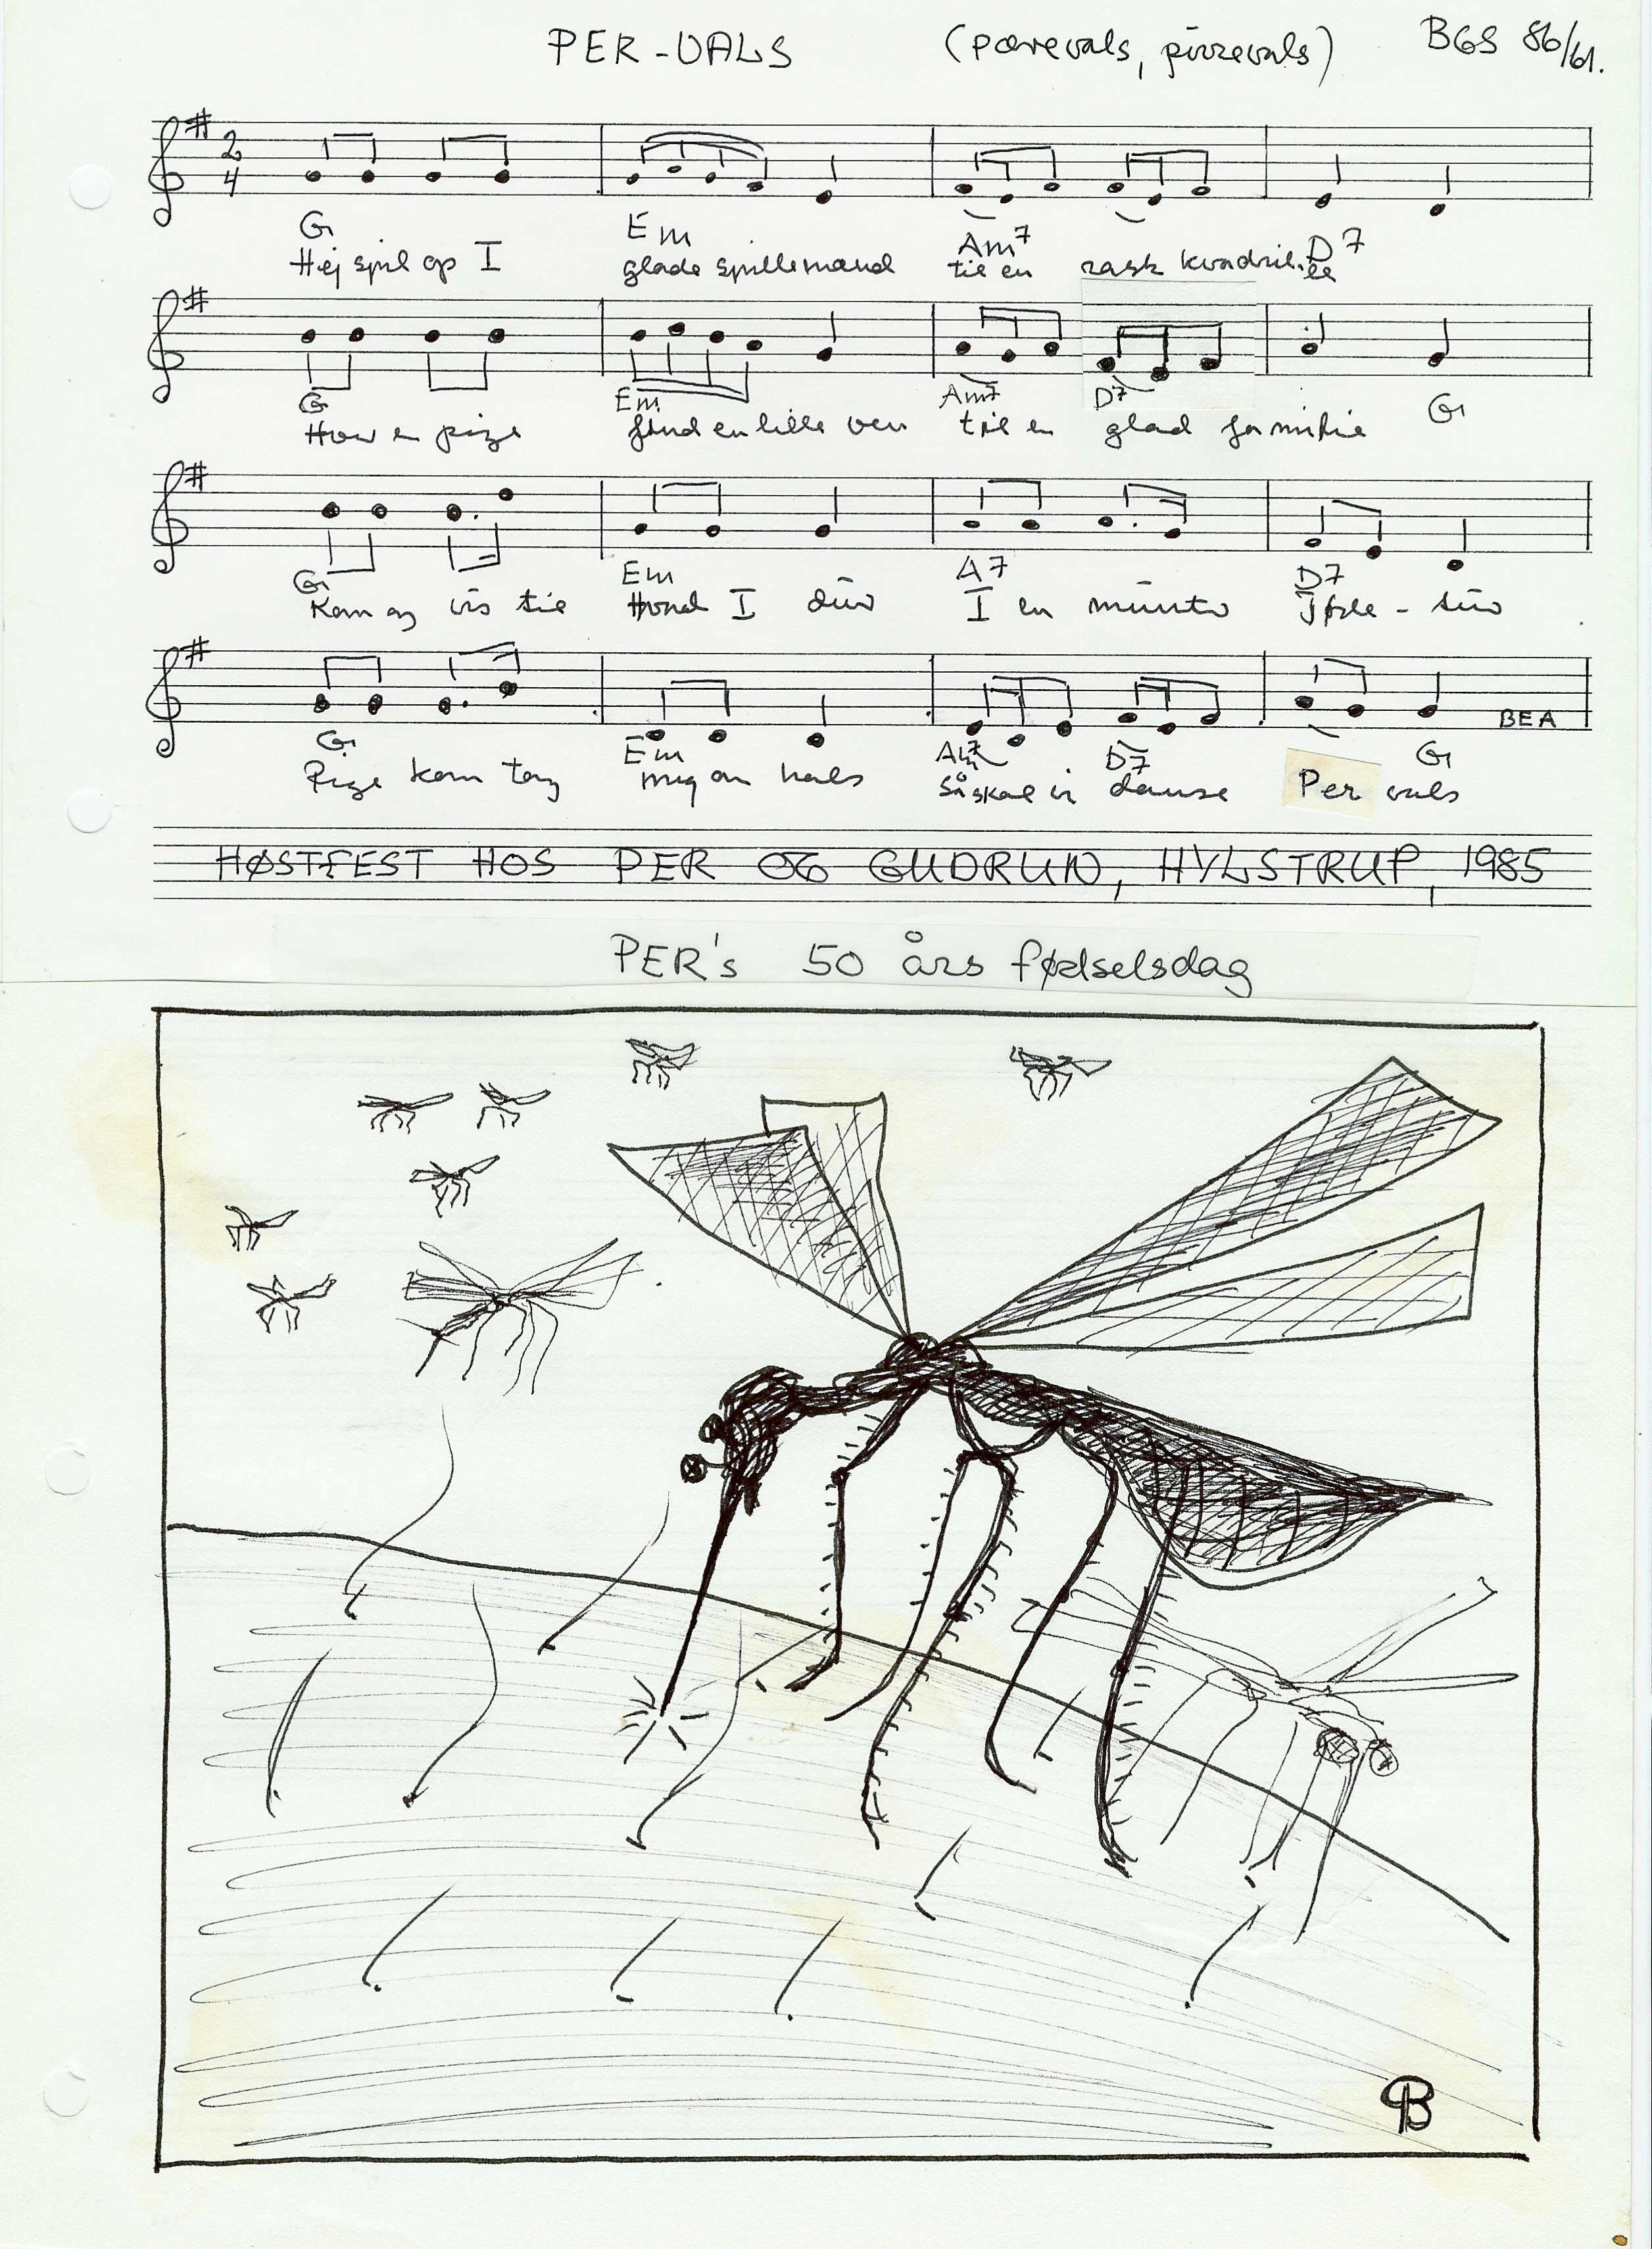 PER-VALS (pærevals, pirrevals) BGS 86/61.
2
4
G Em Am7 D7
Hej spil op I glade spillemænd til en rask kvadrille
G Em Am7 D7 G
Hver en pige find en lille ven til en glad familie
G Em A7 D7
Kom og vis til Hvond I dur I en munter
G Em Am7 D7 G BEA
Pige kom tag mig om hals så skal vi danse Per vals
HØSTFEST HOS PER OG GUDRUN, HYLSTRUP, 1985
PER's 50 års fødselsdag
B